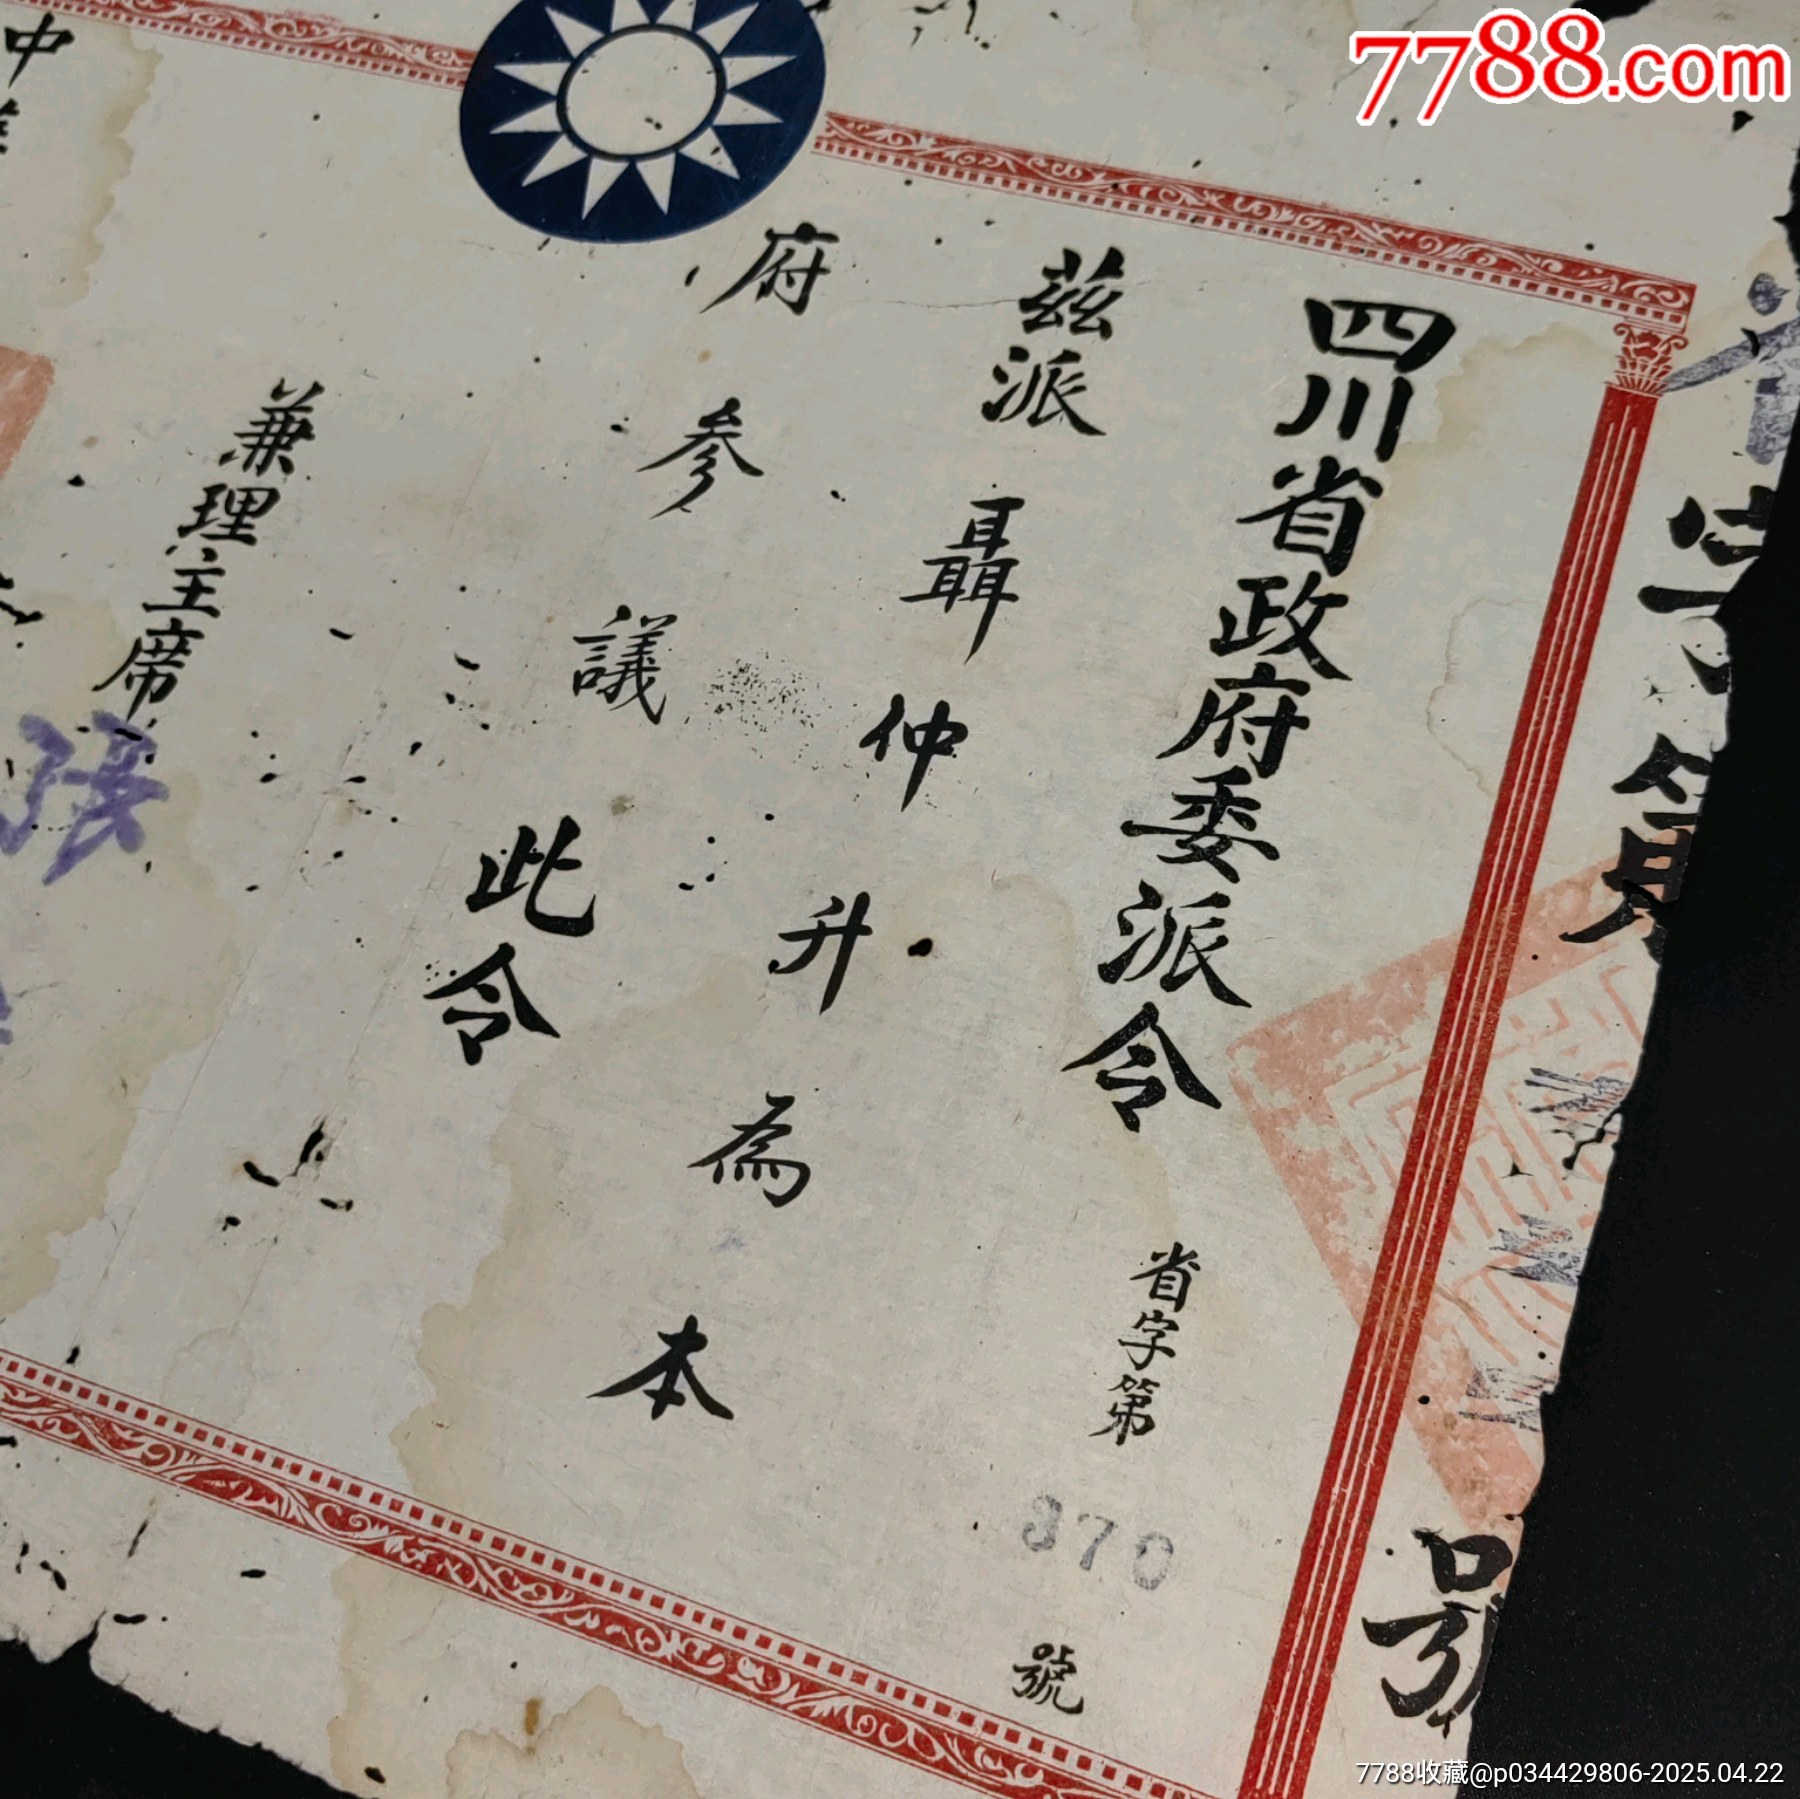 7788.com
字第
號
四川省政府委派令
省字第370號
茲派聶仲升為本
府參議
此令
兼理主席張
中華
7788收藏@p034429806-2025.04.22